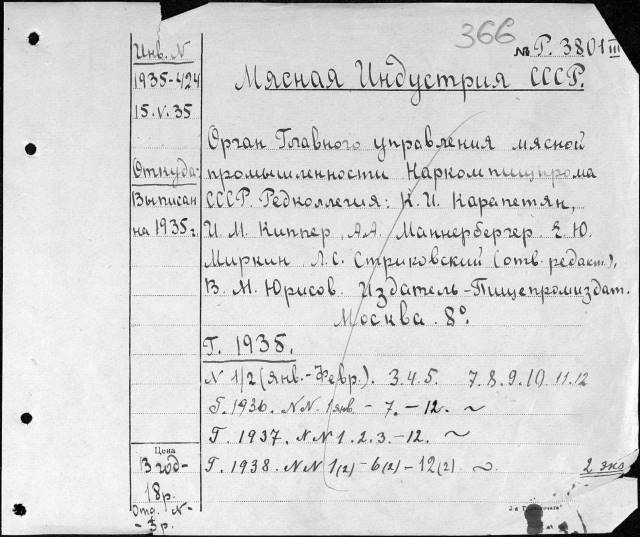 366
№ Р. 3801 III
Мясная Индустрия СССР.
Инв. N
1935-424
15.V.35
Откуда
Выписан
на 1935 г.
Орган Главного управления мясной
промышленности Наркомпищпрома
СССР. Редколлегия: К. И. Карапетян,
И. М. Киппер, А.А. Маннербергер. Е. Ю.
Миркин Л. С. Стриковский (отв. редакт.),
В. М. Юрисов. Издатель-Пищепромиздат.
Москва. 8°.
Г. 1935.
N 1/2 (Янв.-Февр.). 3.4.5. 7.8.9.10. 11.12
Г. 1936. NN. 1 янв. - 7. - 12. ~
Г. 1937. NN 1.2.3.-12. ~
Г. 1938. NN 1(2)-6(2)-12(2) ~ 2 экз
Цена
В год-
18 р.
Отд. N-
- 3 р.